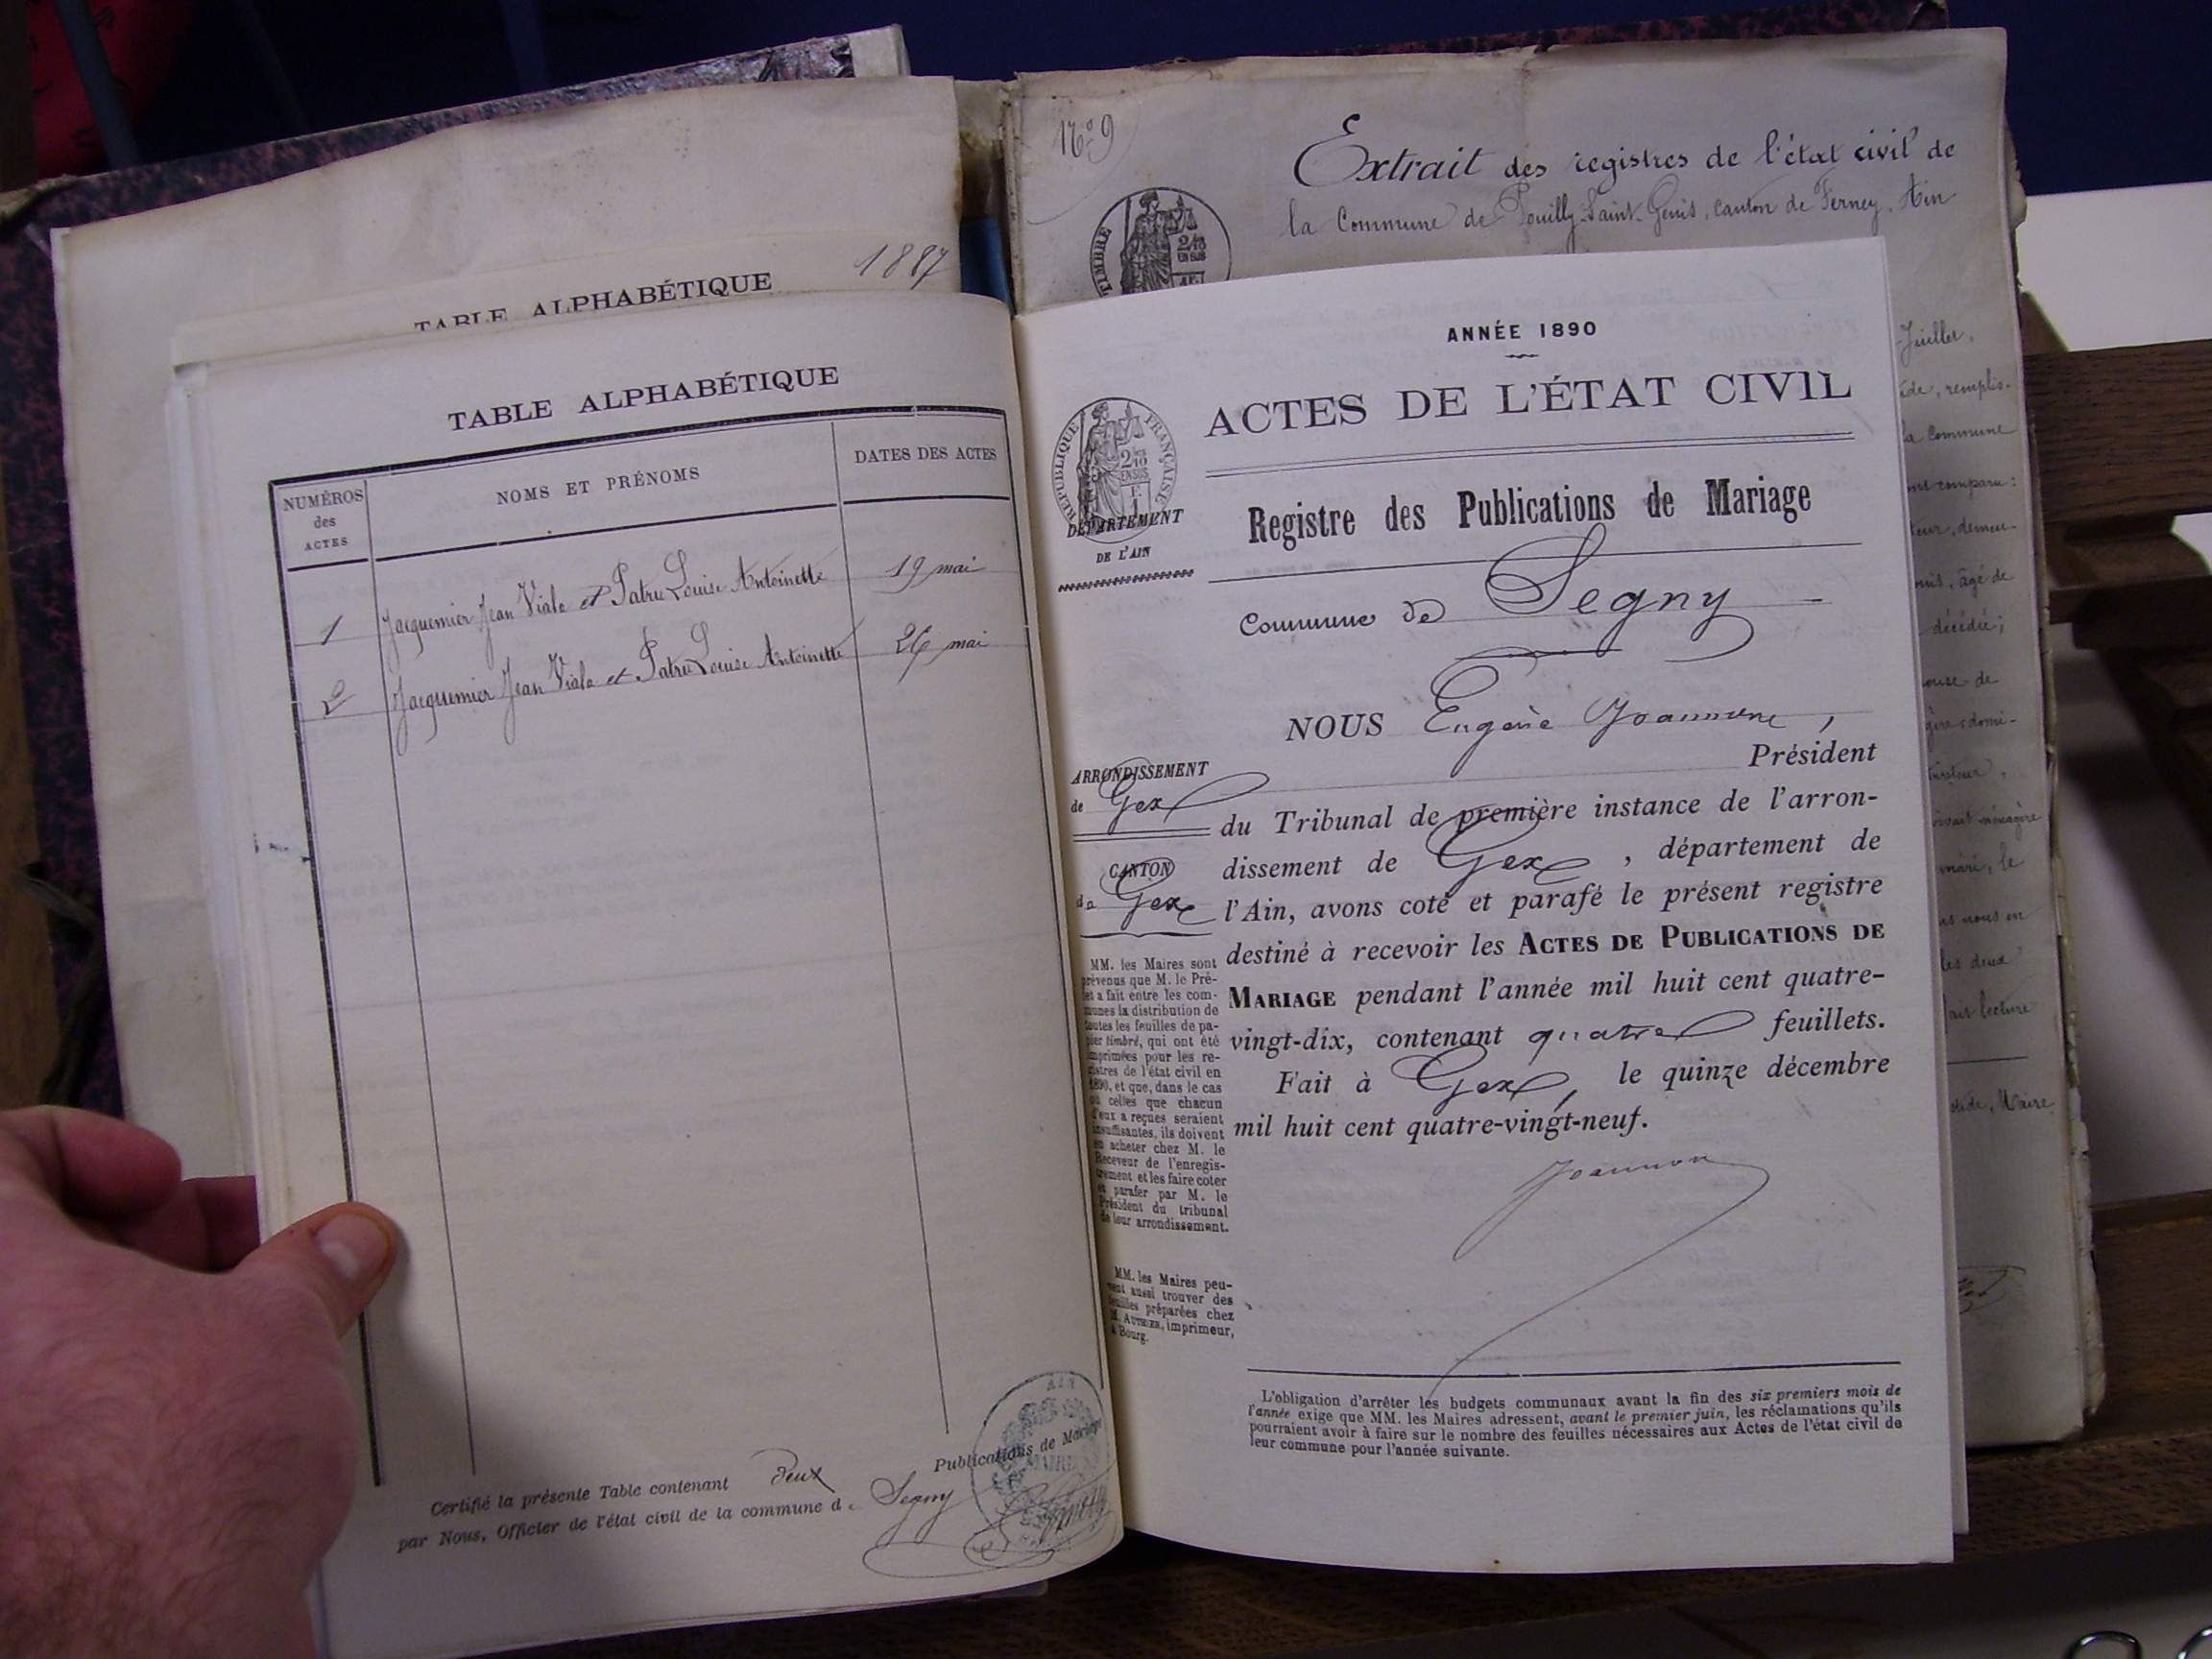 1887
TABLE ALPHABÉTIQUE
TABLE ALPHABÉTIQUE
NUMÉROS des ACTES
NOMS ET PRÉNOMS
DATES DES ACTES
1 Jacquemier Jean Viale et Patru Louise Antoinette 19 mai
2 Jacquemier Jean Viale et Patru Louise Antoinette 26 mai
Certifié la présente Table contenant Deux Publications de Mariage
par Nous, Officier de l'état civil de la commune de Segny
AIN
N° 9
Extrait des registres de l'état civil de
la Commune de Pouilly-Saint-Genis, canton de Ferney, Ain
TIMBRE
ANNÉE 1890
ACTES DE L'ÉTAT CIVIL
RÉPUBLIQUE FRANÇAISE
2/10 EN SUS
DÉPARTEMENT
DE L'AIN
Registre des Publications de Mariage
Commune de Segny
NOUS Eugène Joannon,
Président
ARRONDISSEMENT
de Gex
CANTON
de Gex
du Tribunal de première instance de l'arron-
dissement de Gex, département de
l'Ain, avons coté et parafé le présent registre
destiné à recevoir les ACTES DE PUBLICATIONS DE
MARIAGE pendant l'année mil huit cent quatre-
vingt-dix, contenant quatre feuillets.
Fait à Gex, le quinze décembre
mil huit cent quatre-vingt-neuf.
Joannon
MM. les Maires sont
prévenus que M. le Pré-
fet a fait entre les com-
munes la distribution de
toutes les feuilles de pa-
pier timbré, qui ont été
imprimées pour les re-
gistres de l'état civil en
1890, et que, dans le cas
où celles que chacun
d'eux a reçues seraient
insuffisantes, ils doivent
en acheter chez M. le
Receveur de l'enregis-
trement et les faire coter
et parafer par M. le
Président du tribunal
de leur arrondissement.
MM. les Maires peu-
vent aussi trouver des
feuilles préparées chez
M. AUTHIER, imprimeur,
à Bourg.
L'obligation d'arrêter les budgets communaux avant la fin des six premiers mois de
l'année exige que MM. les Maires adressent, avant le premier juin, les réclamations qu'ils
pourraient avoir à faire sur le nombre des feuilles nécessaires aux Actes de l'état civil de
leur commune pour l'année suivante.
Juillet,
remplis-
la Commune
comparu:
demeu-
âgé de
décédé;
de
domi-
ménagère
le
nous en
les deux
fait lecture
Maire